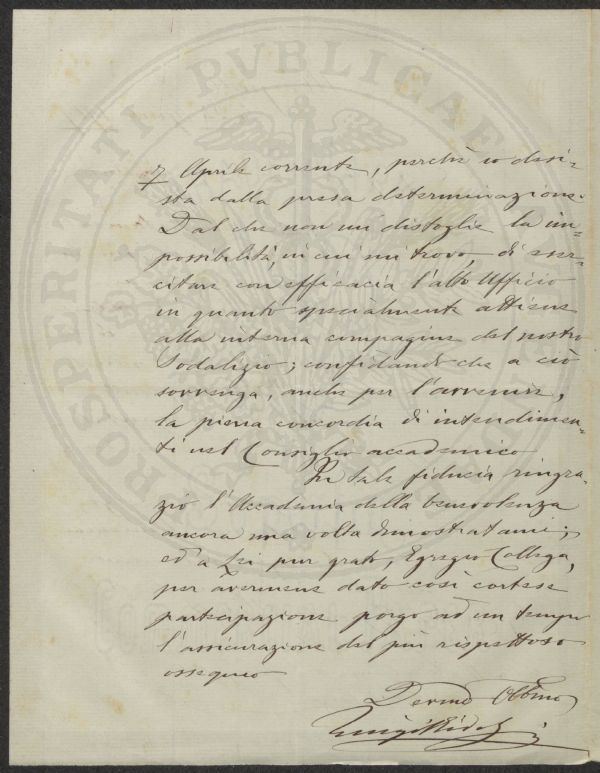 7 Aprile corrente, perchè io desi-
sta dalla presa determinazione.
Dal che non mi distoglie la im-
possibilità, in cui mi trovo, di eser-
citare con efficacia l'alto Ufficio
in quanto specialmente attiene
alla interna compagine del nostro
Sodalizio; confidando che a ciò
sovvenga, anche per l'avvenire,
la piena concordia di intendimen-
ti nel Consiglio accademico
In tale fiducia ringra-
zio l'Accademia della benevolenza
ancora una volta dimostratami;
ed a Lei pur grato, Egregio Collega,
per avermene dato così cortese
partecipazione porgo ad un tempo
l'assicurazione del più rispettoso
ossequio
Devmo Obbmo
Luigi Ridolfi
PROSPERITATI PVBLICAE